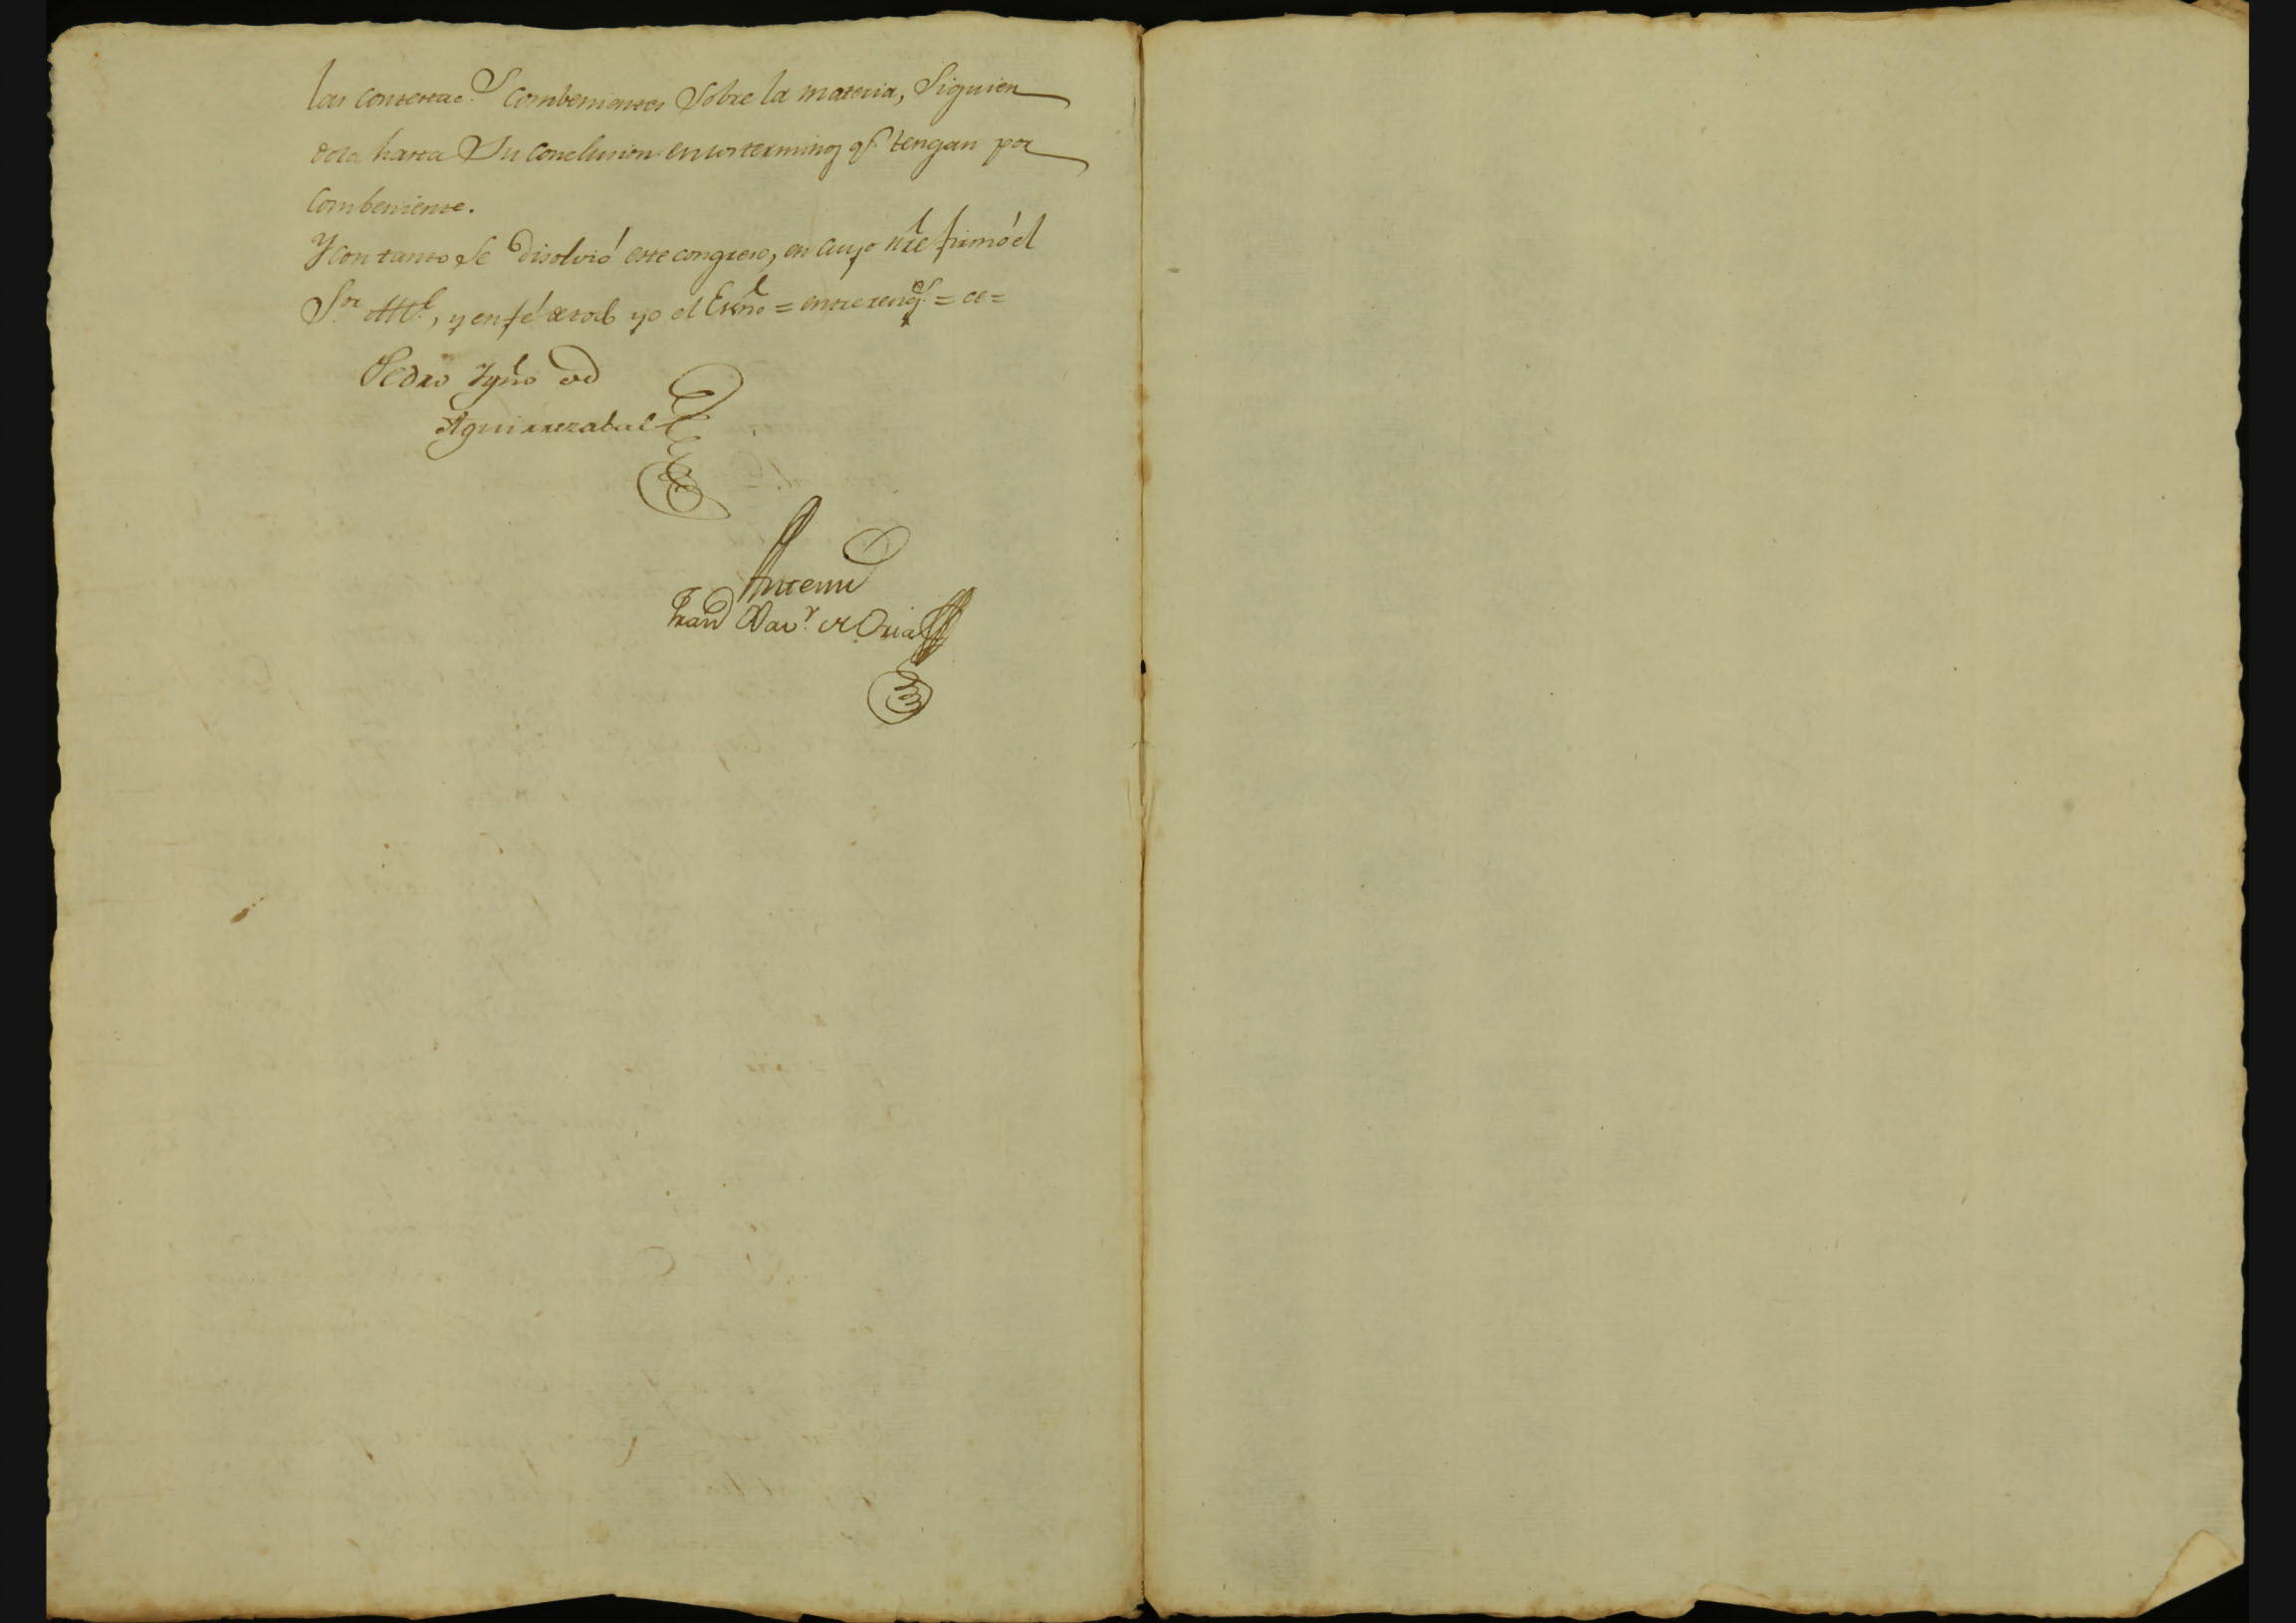 las contestac.s combenientes Sobre la materia, Siguien
dola hasta Su conclusion en los terminos q.e tengan por
combeniente.
Y con tanto Se disolvió este congreso, en cuyo nre firmó el
S.or Alc.e, y en fé de todo yo el Esno = entrereng.s = ce =
Pedro Ygno de
Aguirrezabal
Antemi
Fran.co Xav.r de Oria